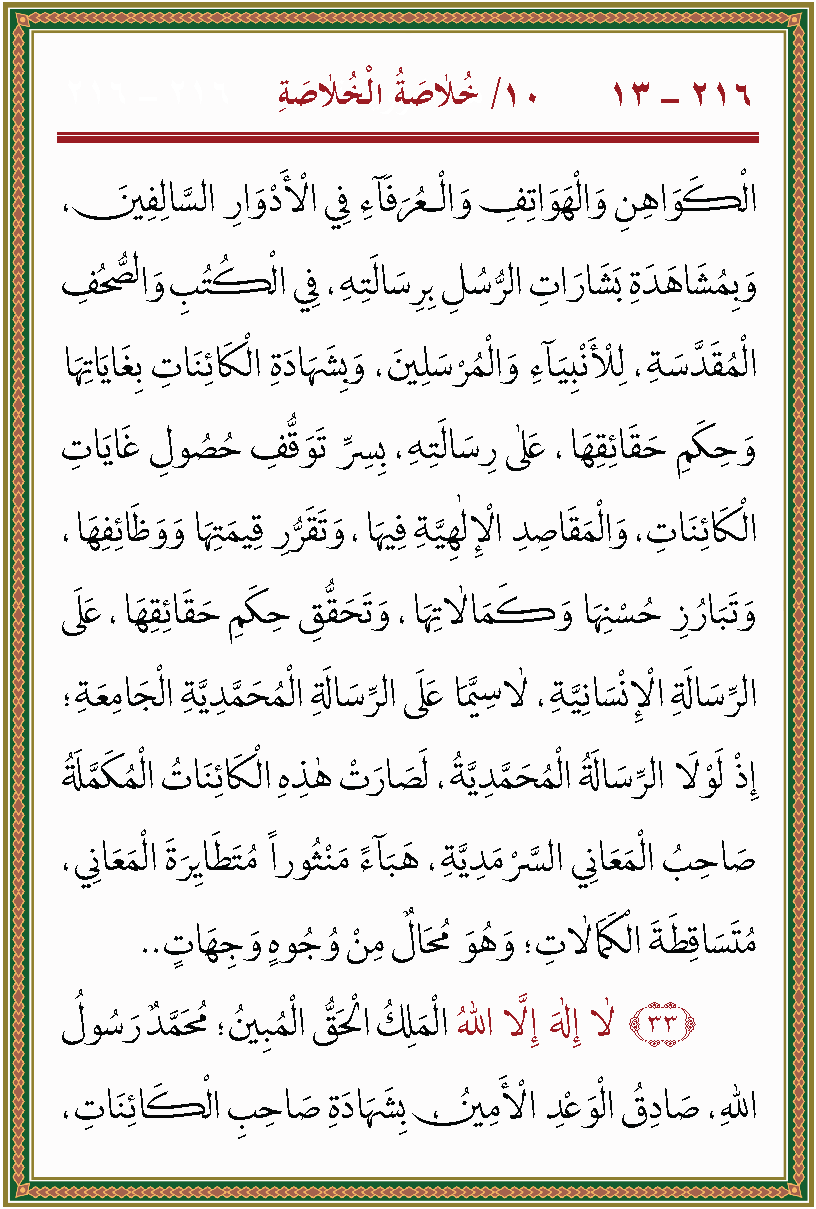 ٢١٦ ــ ١٣ ١٠/ خُلَاصَةُ الْخُلَاصَةِ
الْكَوَاهِنِ وَالْهَوَاتِفِ وَالْعُرَفَآءِ فِي الْأَدْوَارِ السَّالِفِينَ،
وَبِمُشَاهَدَةِ بَشَارَاتِ الرُّسُلِ بِرِسَالَتِهِ، فِي الْكُتُبِ وَالصُّحُفِ
الْمُقَدَّسَةِ، لِلْأَنْبِيَآءِ وَالْمُرْسَلِينَ، وَبِشَهَادَةِ الْكَائِنَاتِ بِغَايَاتِهَا
وَحِكَمِ حَقَائِقِهَا، عَلٰى رِسَالَتِهِ، بِسِرِّ تَوَقُّفِ حُصُولِ غَايَاتِ
الْكَائِنَاتِ، وَالْمَقَاصِدِ الْإِلٰهِيَّةِ فِيهَا، وَتَقَرُّرِ قِيمَتِهَا وَوَظَائِفِهَا،
وَتَبَارُزِ حُسْنِهَا وَكَمَالَاتِهَا، وَتَحَقُّقِ حِكَمِ حَقَائِقِهَا، عَلَى
الرِّسَالَةِ الْإِنْسَانِيَّةِ، لَاسِيَّمَا عَلَى الرِّسَالَةِ الْمُحَمَّدِيَّةِ الْجَامِعَةِ؛
إِذْ لَوْلَا الرِّسَالَةُ الْمُحَمَّدِيَّةُ، لَصَارَتْ هٰذِهِ الْكَائِنَاتُ الْمُكَمَّلَةُ
صَاحِبُ الْمَعَانِي السَّرْمَدِيَّةِ، هَبَآءً مَنْثُوراً مُتَطَايِرَةَ الْمَعَانِي،
مُتَسَاقِطَةَ الْكَمَالَاتِ؛ وَهُوَ مُحَالٌ مِنْ وُجُوهٍ وَجِهَاتٍ..
﴿٣٣﴾ لَا إِلٰهَ إِلَّا اللهُ الْمَلِكُ الْحَقُّ الْمُبِينُ؛ مُحَمَّدٌ رَسُولُ
اللهِ، صَادِقُ الْوَعْدِ الْأَمِينُ، بِشَهَادَةِ صَاحِبِ الْكَائِنَاتِ،